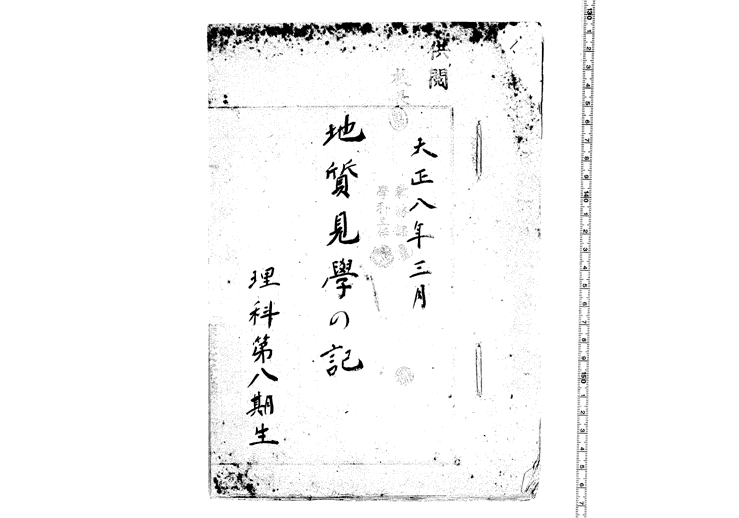 供閲
大正八年三月
地質見學の記
理科第八期生